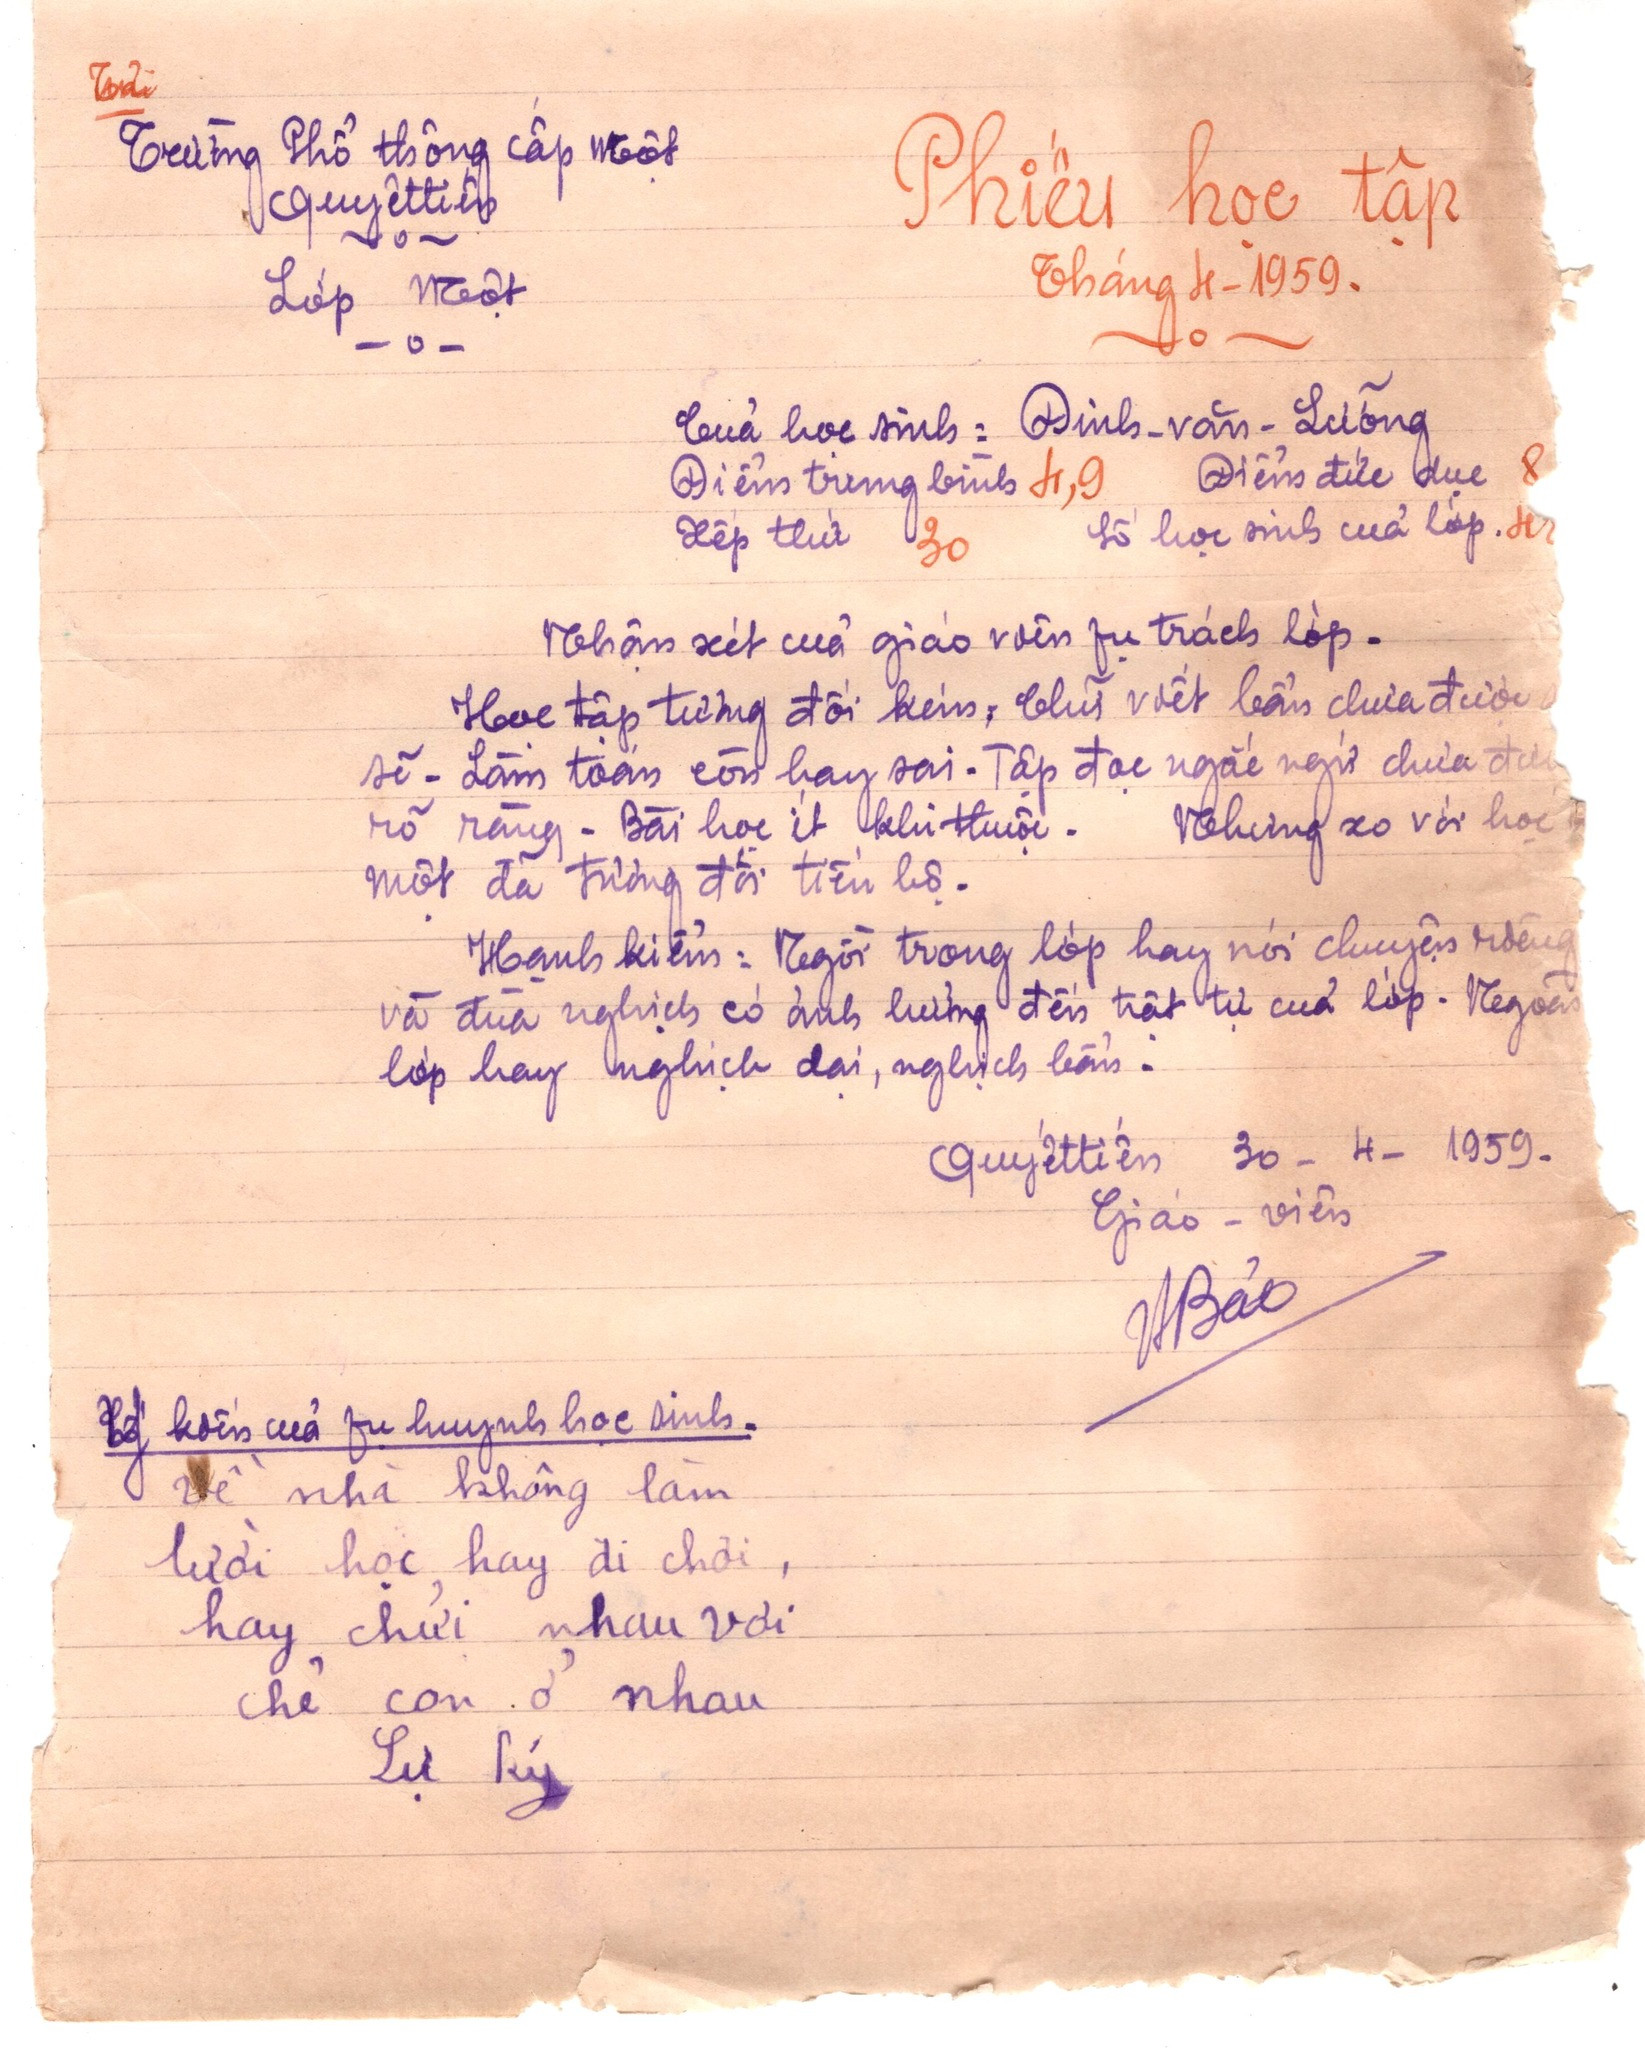 Trường Phổ thông cấp một
Quyêttiến
Lớp Một
Phiếu học tập
Tháng 4-1959.
Cuả học sinh: Đinh-văn-Lưỡng
Điểm trung bình 4,9 Điểm đức dục 8
Xếp thứ 30 Số học sinh cuả lớp.
Nhận xét cuả giáo viên fụ trách lớp.
Học tập tương đối kém, Chữ viết bẩn chưa được
sẽ - Làm toán còn hay sai - Tập đọc ngắc ngứ chưa được
rõ ràng - Bài học ít khi thuộc. Nhưng so với học
một đã tương đối tiến bộ.
Hạnh kiểm: Ngồi trong lớp hay nói chuyện riêng
và đuà nghịch có ảnh hưởng đến trật tự cuả lớp. Ngoài
lớp hay nghịch dại, nghịch bẩn.
Quyêttiến 30-4-1959.
Giáo - viên
VBảo
Ý kiến cuả fụ huynh học sinh.
về nhà không làm
lười học, hay đi chơi,
hay chửi nhau với
chẻ con ở nhau
Lự ký